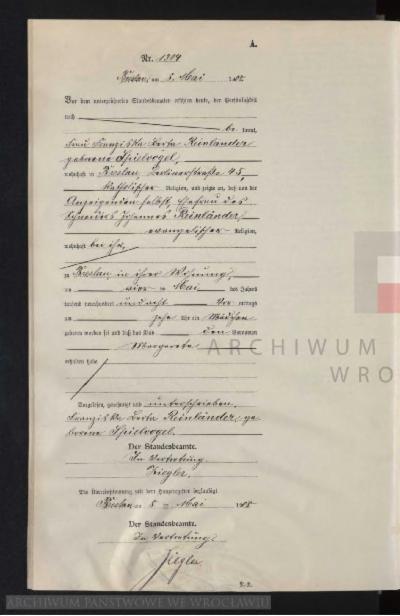 A.
Nr. 1304
Breslau, am 5. Mai 1908
Vor dem unterzeichneten Standesbeamten erschien heute, der Persönlichkeit
nach be kannt,
Frau Franziska Berta Reinländer
geborene Spielvogel,
wohnhaft in Breslau, Berlinerstraße 45,
katholischer Religion, und zeigte an, daß von der
Anzeigenden selbst, Ehefrau des
Johannes Reinländer,
evangelischer Religion,
wohnhaft bei ihr,
zu Breslau in ihrer Wohnung,
am vier Mai des Jahres
tausend neunhundert und acht Vor mittags
um zehn Uhr ein Mädchen
geboren worden sei und daß das Kind den Vornamen
Margarete
erhalten habe.
Vorgelesen, genehmigt und unterschrieben.
Franziska Berta Reinländer, ge
borene Spielvogel.
Der Standesbeamte.
In Vertretung.
Ziegler.
Die Übereinstimmung mit dem Hauptregister beglaubigt
Breslau am 5 Mai 1908
Der Standesbeamte.
In Vertretung.
Ziegler.
ARCHIWUM
WRO
ARCHIWUM PAŃSTWOWE WE WROCŁAWIU